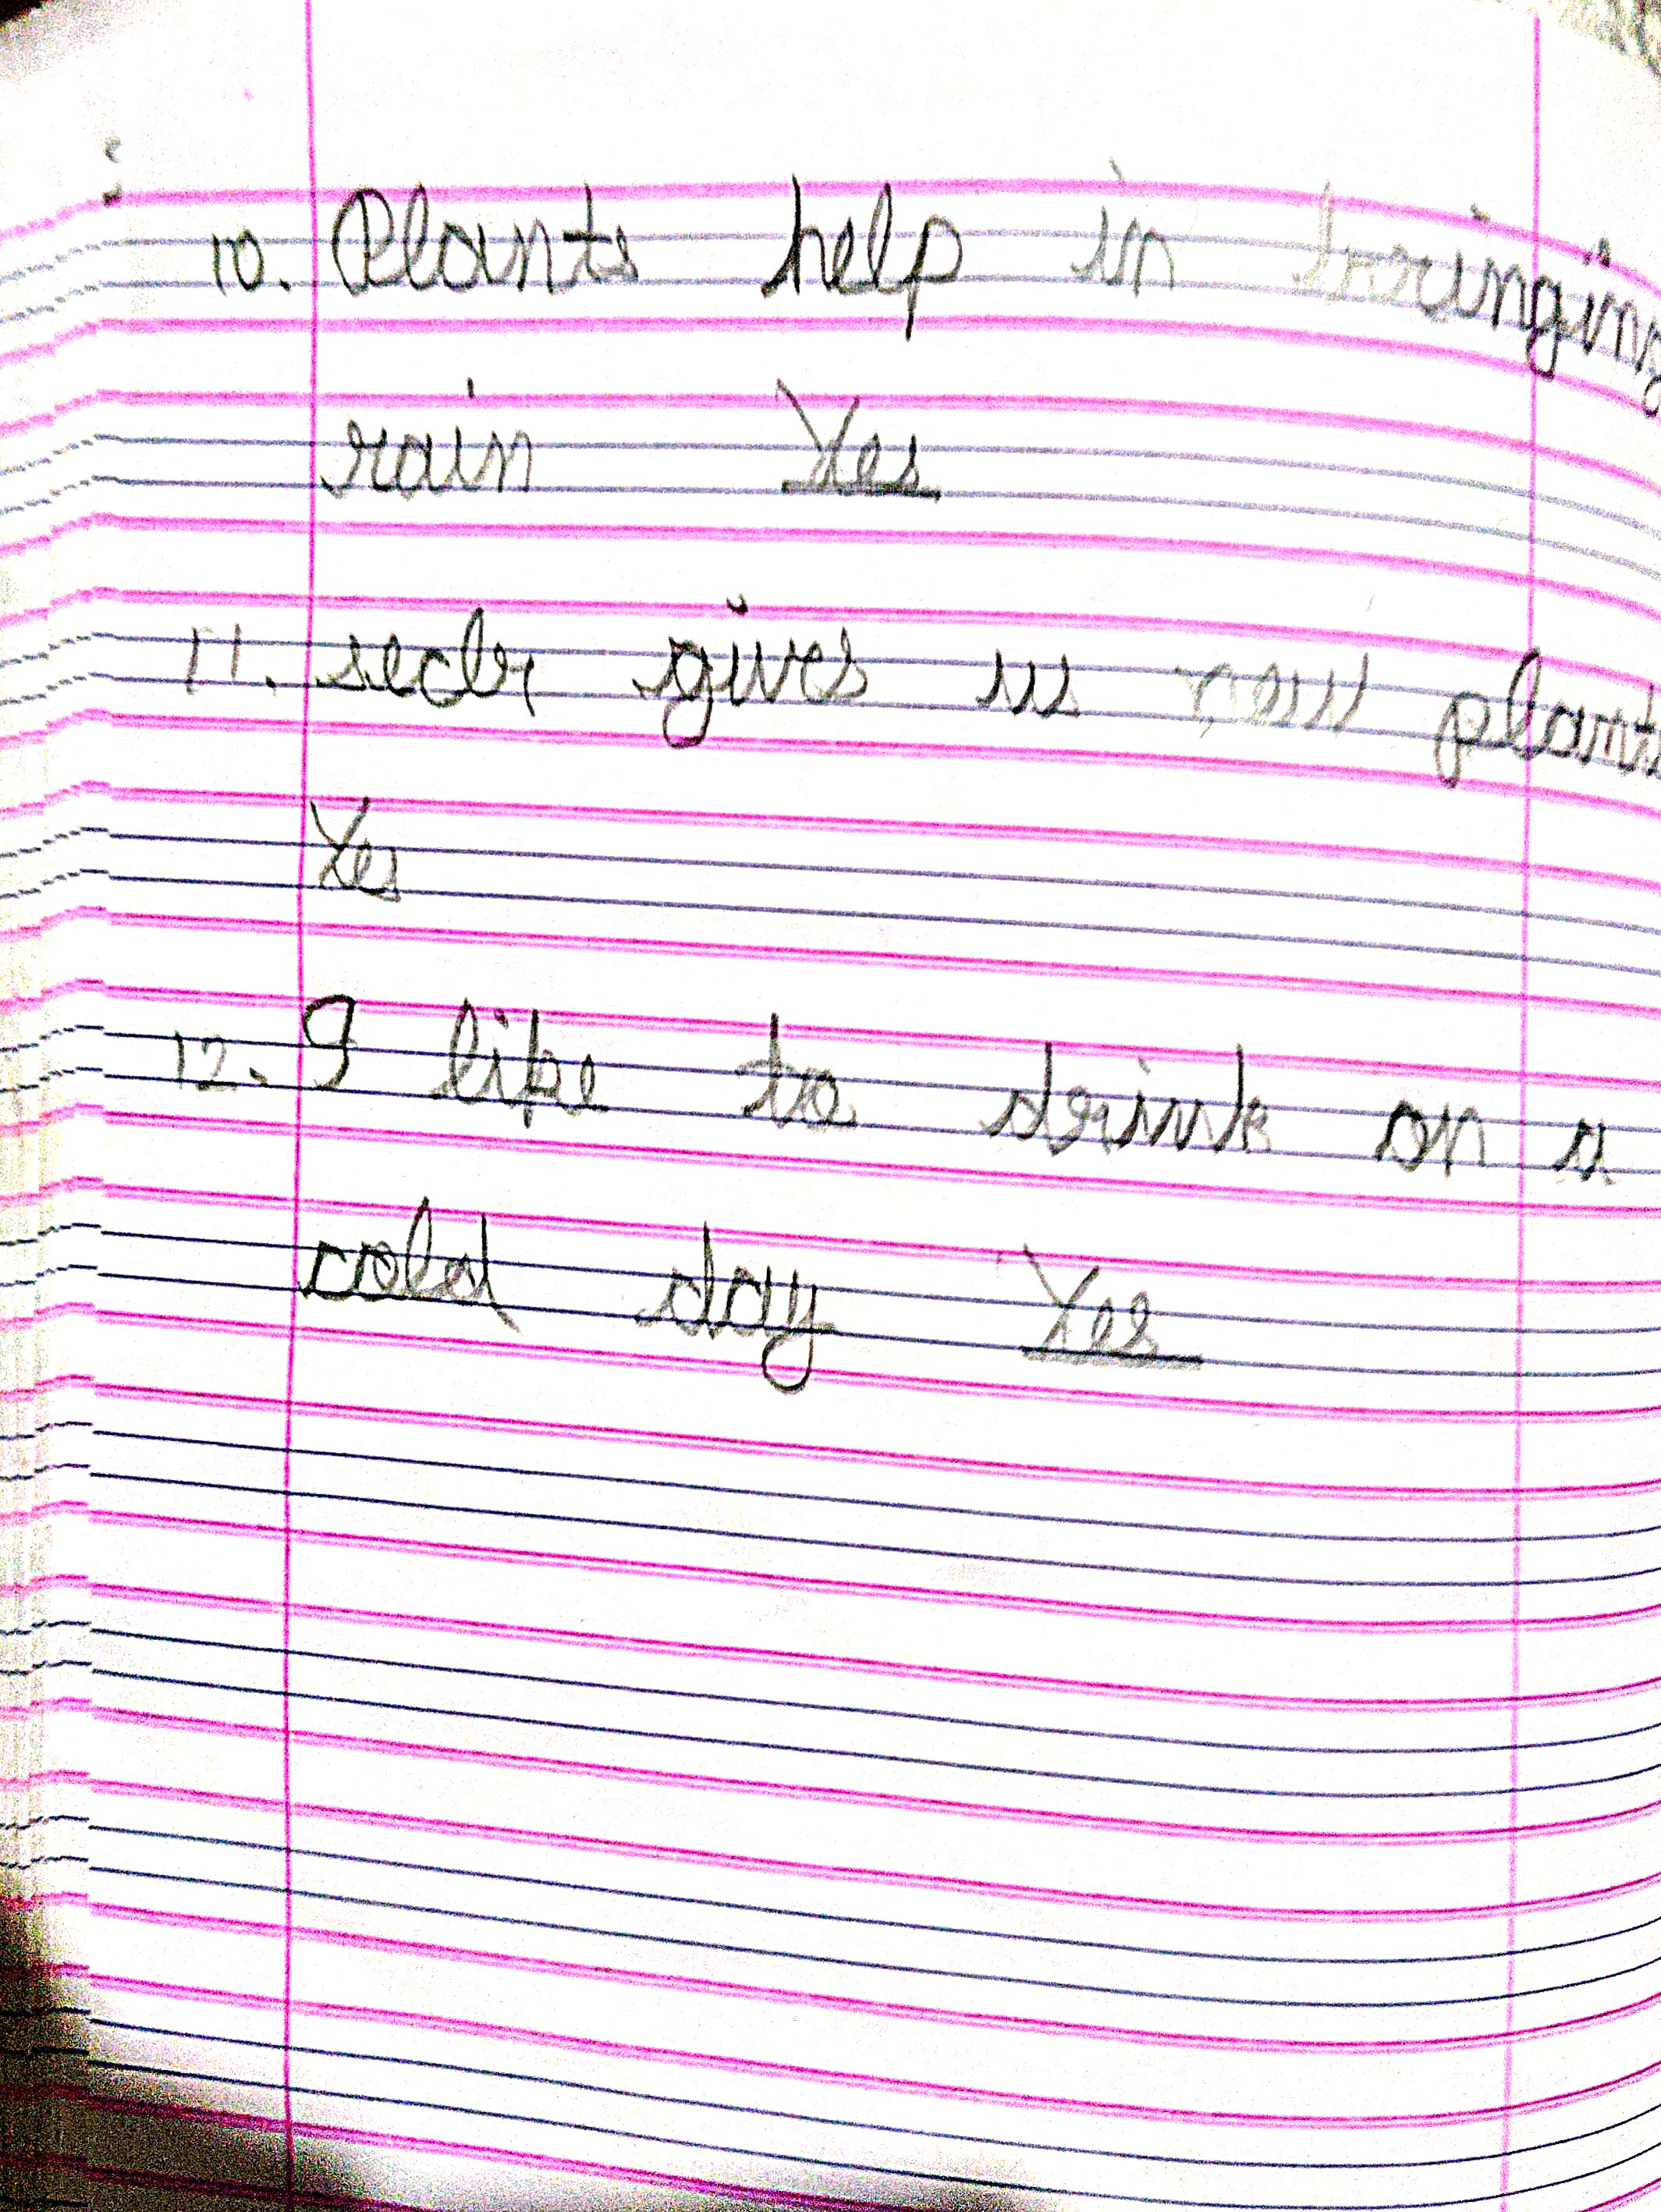 10. Plants help in bringing
rain Yes
11. gives us new plants
Yes
12. I like to drink on a
cold day Yes